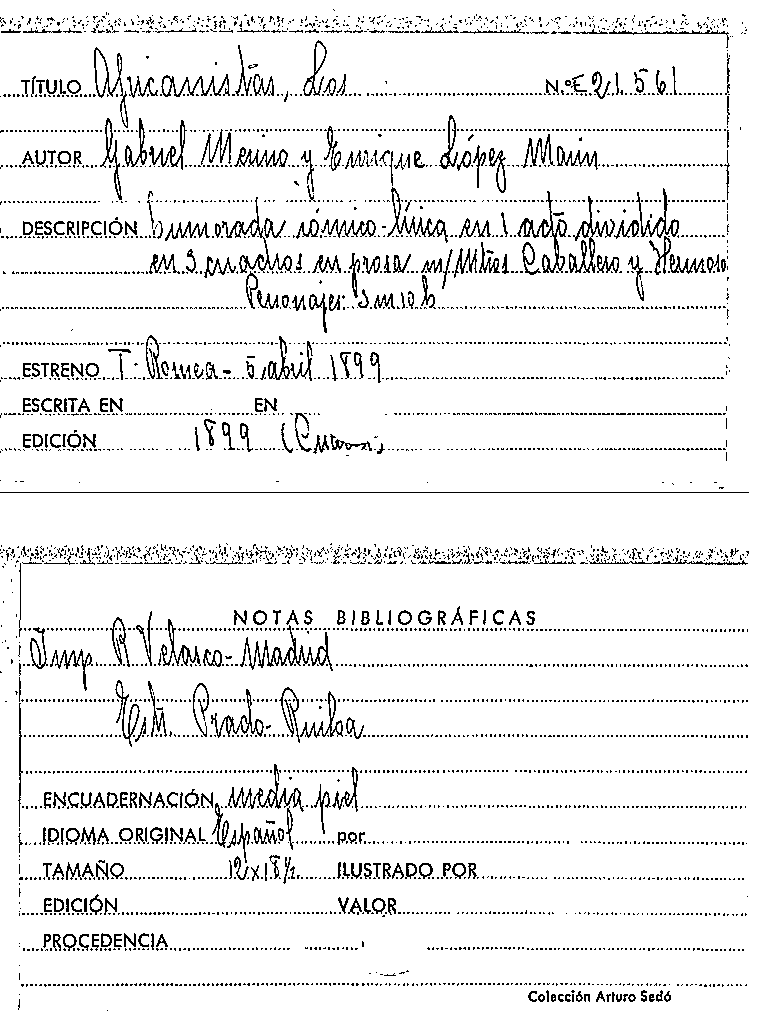 TÍTULO Africanistas, Los N.ºE 21.561
AUTOR Gabriel Merino y Enrique López Marin
DESCRIPCIÓN humorada cómico-lírica en 1 acto dividido
en 3 cuadros en prosa m/ Mtros Caballero y Hermoso
Personajes: 3 m 10 h
ESTRENO T. Romea - 5 abril 1899
ESCRITA EN EN
EDICIÓN 1899
NOTAS BIBLIOGRÁFICAS
Imp R Velasco-Madrid
Estr. Prado-Ruiloa
ENCUADERNACIÓN media piel
IDIOMA ORIGINAL Español por
TAMAÑO 12x18½ ILUSTRADO POR
EDICIÓN VALOR
PROCEDENCIA
Colección Arturo Sedó